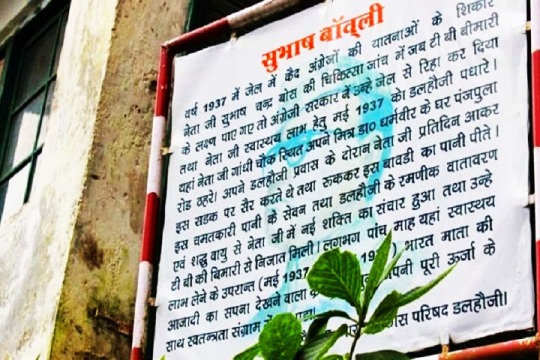 सुभाष बॉव्ली
वर्ष 1937 में जेल में कैद अंग्रेजों की यातनाओं के शिकार
नेता जी सुभाष चन्द्र बोस की चिकित्सा जांच में जब टी बी बीमारी
के लक्षण पाए गए तो अंग्रेजी सरकार नें उन्हे जेल से रिहा कर दिया
तथा नेता जी स्वास्थय लाभ हेतु मई 1937 को। डलहौजी पधारे।
यहां नेता जी गांधी चौक स्थित अपने मित्र डा० धर्मवीर के घर पंजपुला
रोड ठहरे। अपने डलहौजी प्रवास के दौरान नेता जी प्रतिदिन आकर
इस सडक पर सैर करते थे तथा रुककर इस बावडी का पानी पीते।
इस चमतकारी पानी के सेवन तथा डलहौजी के रमणीक वातावरण
एवं शद्ध वायु से नेता जी में नई शक्ति का संचार हुआ तथा उन्हे
टी बी की बिमारी से निजात मिली। लगभग पांच माह यहां स्वास्थय
लाभ लेने के उपरान्त (मई 1937 भारत माता की
आजादी का सपना देखने वाला पूरी ऊर्जा के
साथ स्वतन्त्रता संग्राम में परिषद डलहौजी।